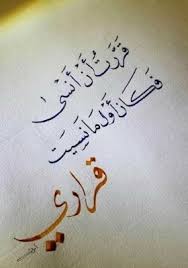 قَرَّرتُ أنْ أَنسَىٰ
فَكَانَ أوَّلَ مَا نَسِيت
قراري